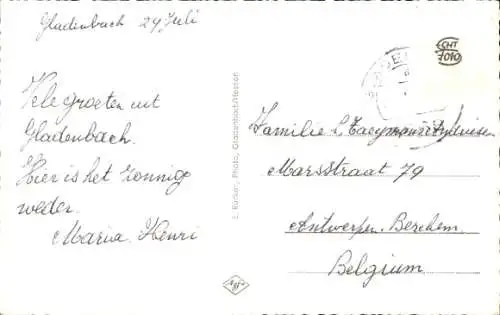 Gladenbach 24 Juli
Vele groeten uit
Gladenbach.
Hier is het zonnig
weder.
Maria. Henri
Photo, Gladenbach/Hessen
ECHT
FOTO
Familie
Marsstraat 79
Antwerpen. Berchem.
Belgium